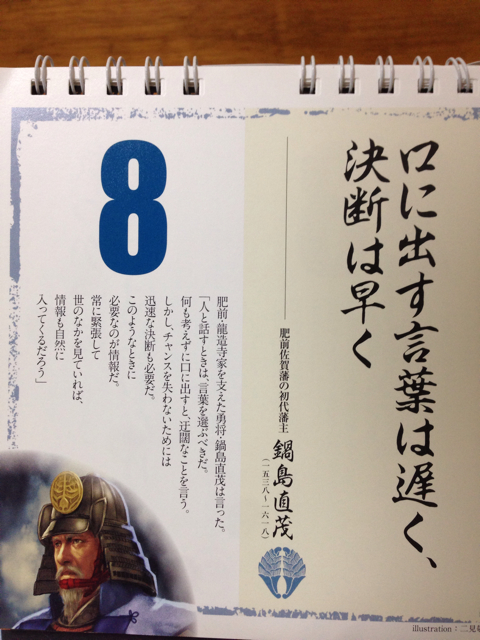 口に出す言葉は遅く、
決断は早く
肥前佐賀藩の初代藩主 鍋島直茂
(一五三八〜一六一八)
8
肥前・龍造寺家を支えた勇将・鍋島直茂は言った。
「人と話すときは、言葉を選ぶべきだ。
何も考えずに口に出すと、迂闊なことを言う。
しかし、チャンスを失わないためには
迅速な決断も必要だ。
このようなときに
必要なのが情報だ。
常に緊張して
世のなかを見ていれば、
情報も自然に
入ってくるだろう」
illustration:二見